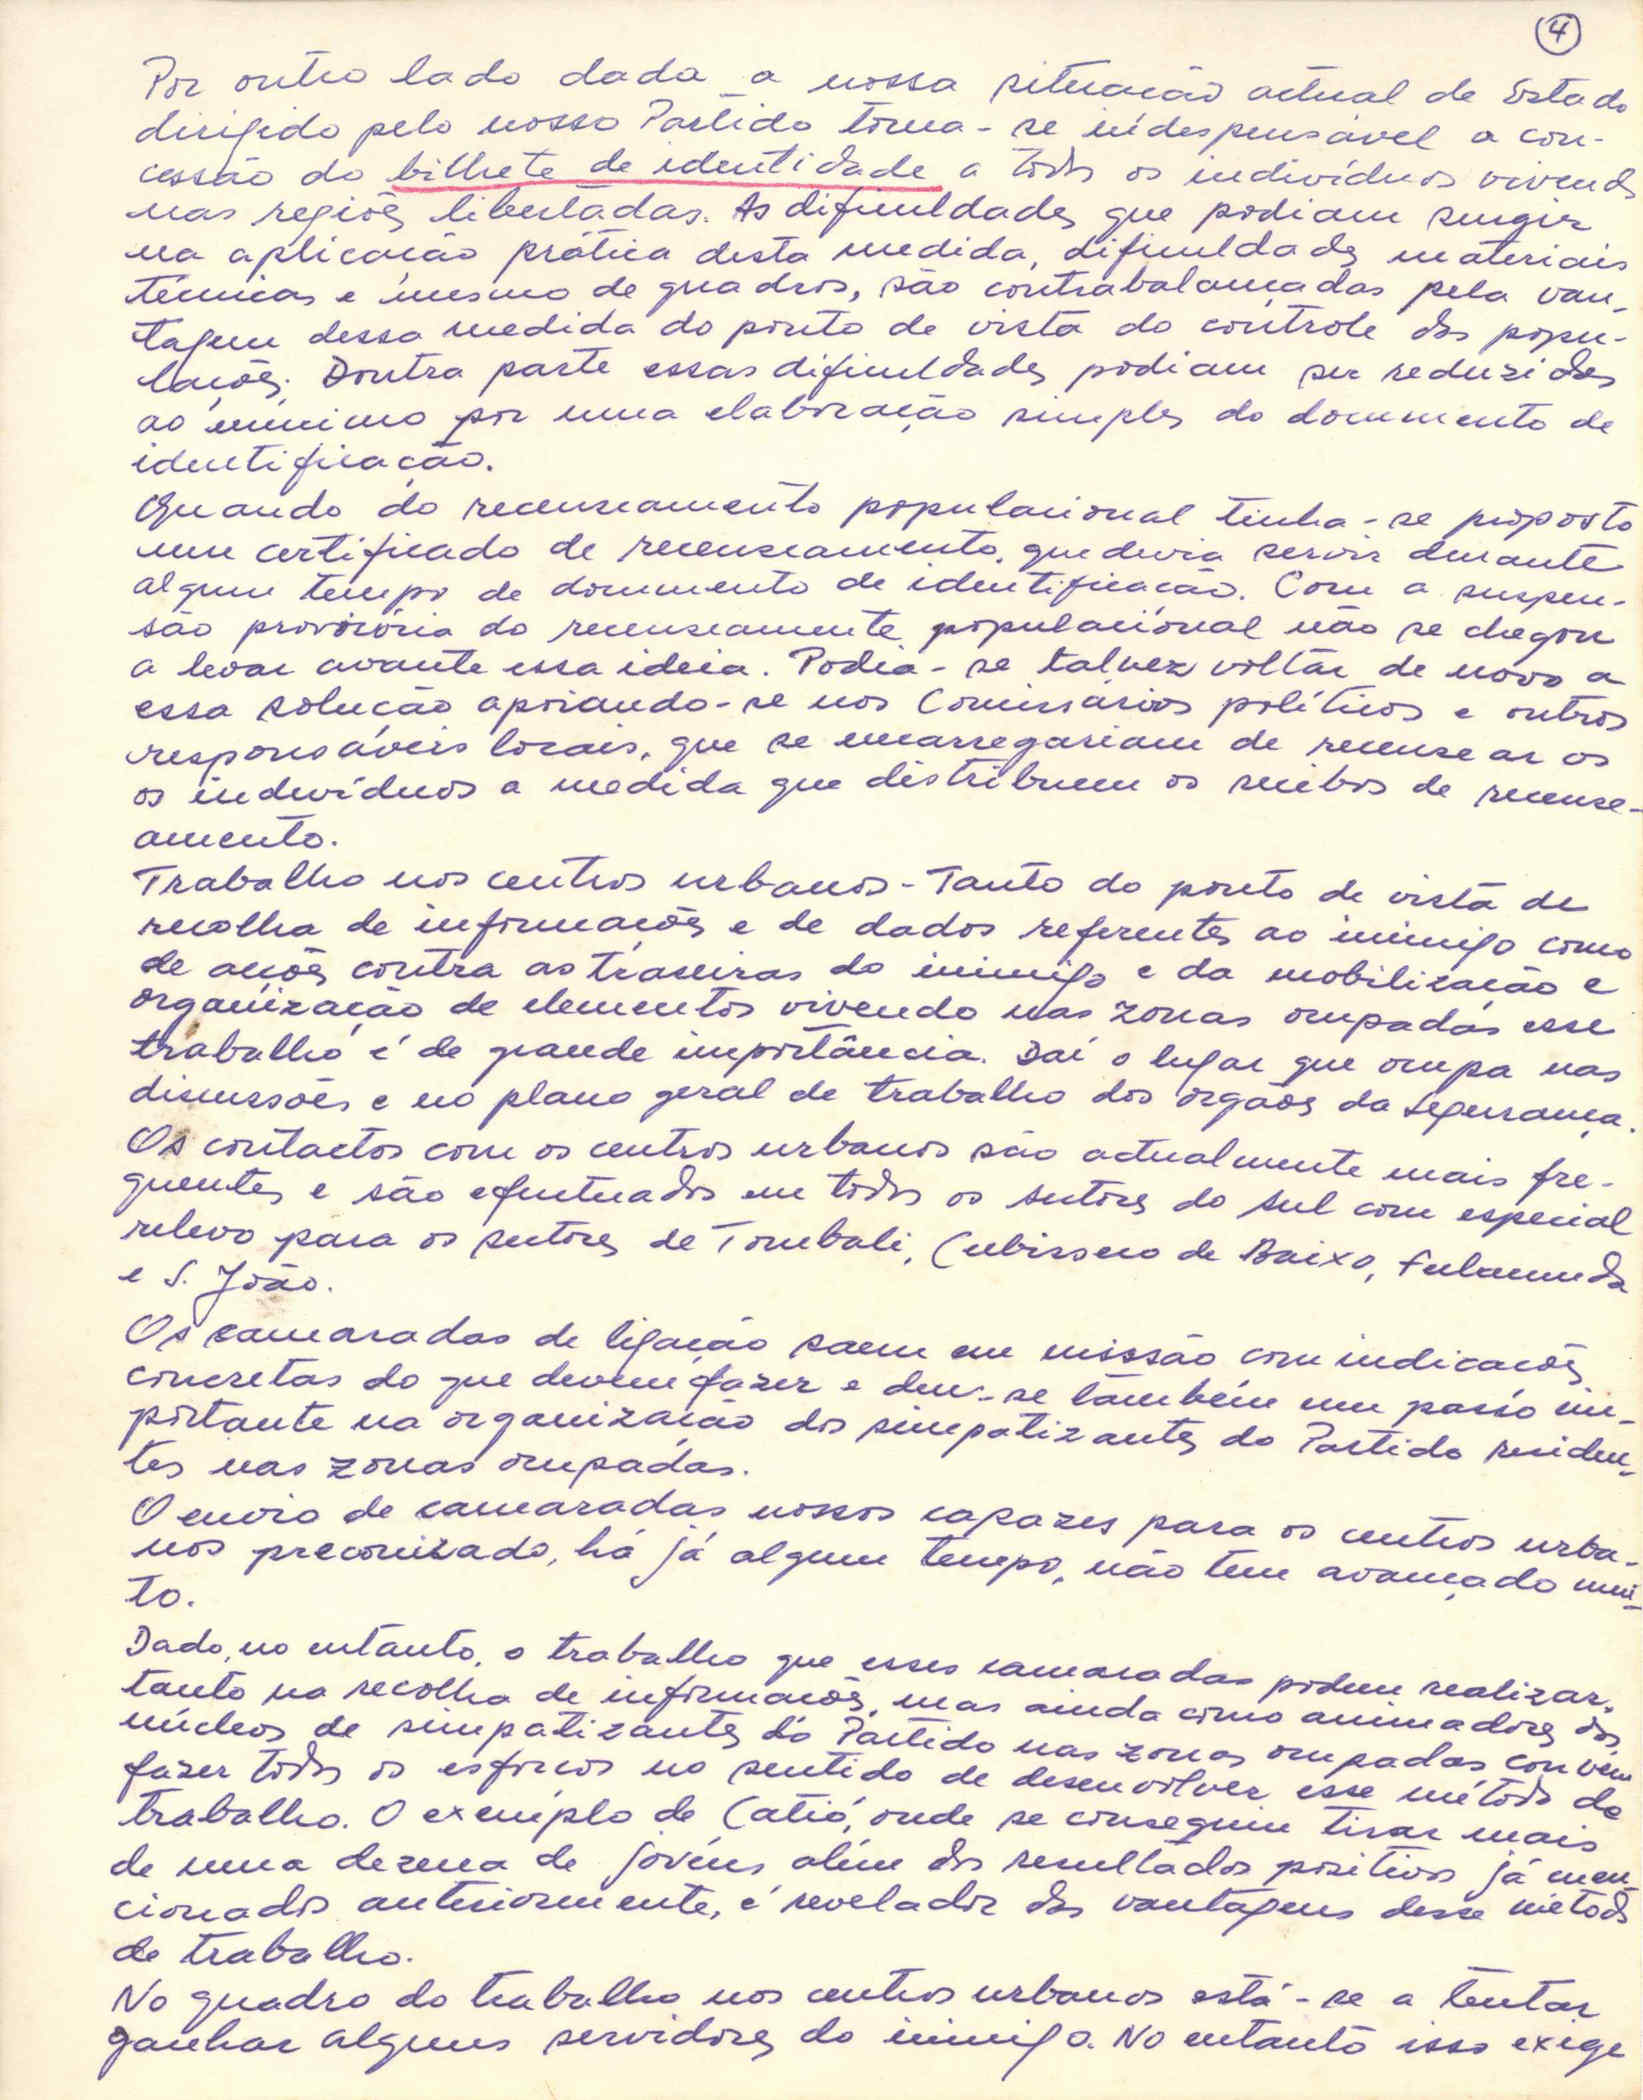 4
Por outro lado dada a nossa situação actual de Estado
dirigido pelo nosso Partido torna-se indespensável a con-
cessão do bilhete de identidade a todos os indivíduos vivendo
nas regiões libertadas. As dificuldades que podiam surgir
na aplicação prática desta medida, dificuldades materiais
técnicas e mesmo de quadros, são contrabalançadas pela van-
tagem dessa medida do ponto de vista do controle das popu-
lações. Doutra parte essas dificuldades podiam ser reduzidas
ao mínimo por uma elaboração simples do documento de
identificação.
Quando do recenseamento populacional tinha-se proposto
um certificado de recenseamento, que devia servir durante
algum tempo de documento de identificação. Com a suspen-
são provisória do recenseamente populacional não se chegou
a levar avante essa ideia. Podia-se talvez voltar de novo a
essa solução apoiando-se nos Comissários políticos e outros
responsáveis locais, que se encarregariam de recensear os
os indivíduos a medida que distribuem os recibos de recense-
amento.
Trabalho nos centros urbanos - Tanto do ponto de vista de
recolha de informações e de dados referentes ao inimigo como
de acções contra as traseiras do inimigo e da mobilização e
organização de elementos vivendo nas zonas ocupadas esse
trabalho é de grande importância. Daí o lugar que ocupa nas
discussões e no plano geral de trabalho dos orgãos da Segurança.
Os contactos com os centros urbanos são actualmente mais fre-
quentes e são efectuados em todos os sectores do sul com especial
relevo para os sectores de Tombali, Cubisseco de Baixo, Fulacunda
e S. João.
Os camaradas de ligação saem em missão com indicações
concretas do que devem fazer e deu-se também um passo im-
portante na organização dos simpatizantes do Partido residen-
tes nas zonas ocupadas.
O envio de camaradas nossos capazes para os centros urba-
nos preconizado, há já algum tempo, não tem avançado mui-
to.
Dado, no entanto, o trabalho que esses camaradas podem realizar,
tanto na recolha de informações, mas ainda como animadores dos
núcleos de simpatizantes do Partido nas zonas ocupadas convém
fazer todos os esforços no sentido de desenvolver esse método de
trabalho. O exemplo de Catió, onde se conseguiu tirar mais
de uma dezena de jovens além dos resultados positivos já men-
cionados anteriormente, é revelador das vantagens desse método
de trabalho.
No quadro do trabalho nos centros urbanos está-se a tentar
ganhar alguns servidores do inimigo. No entanto isso exige